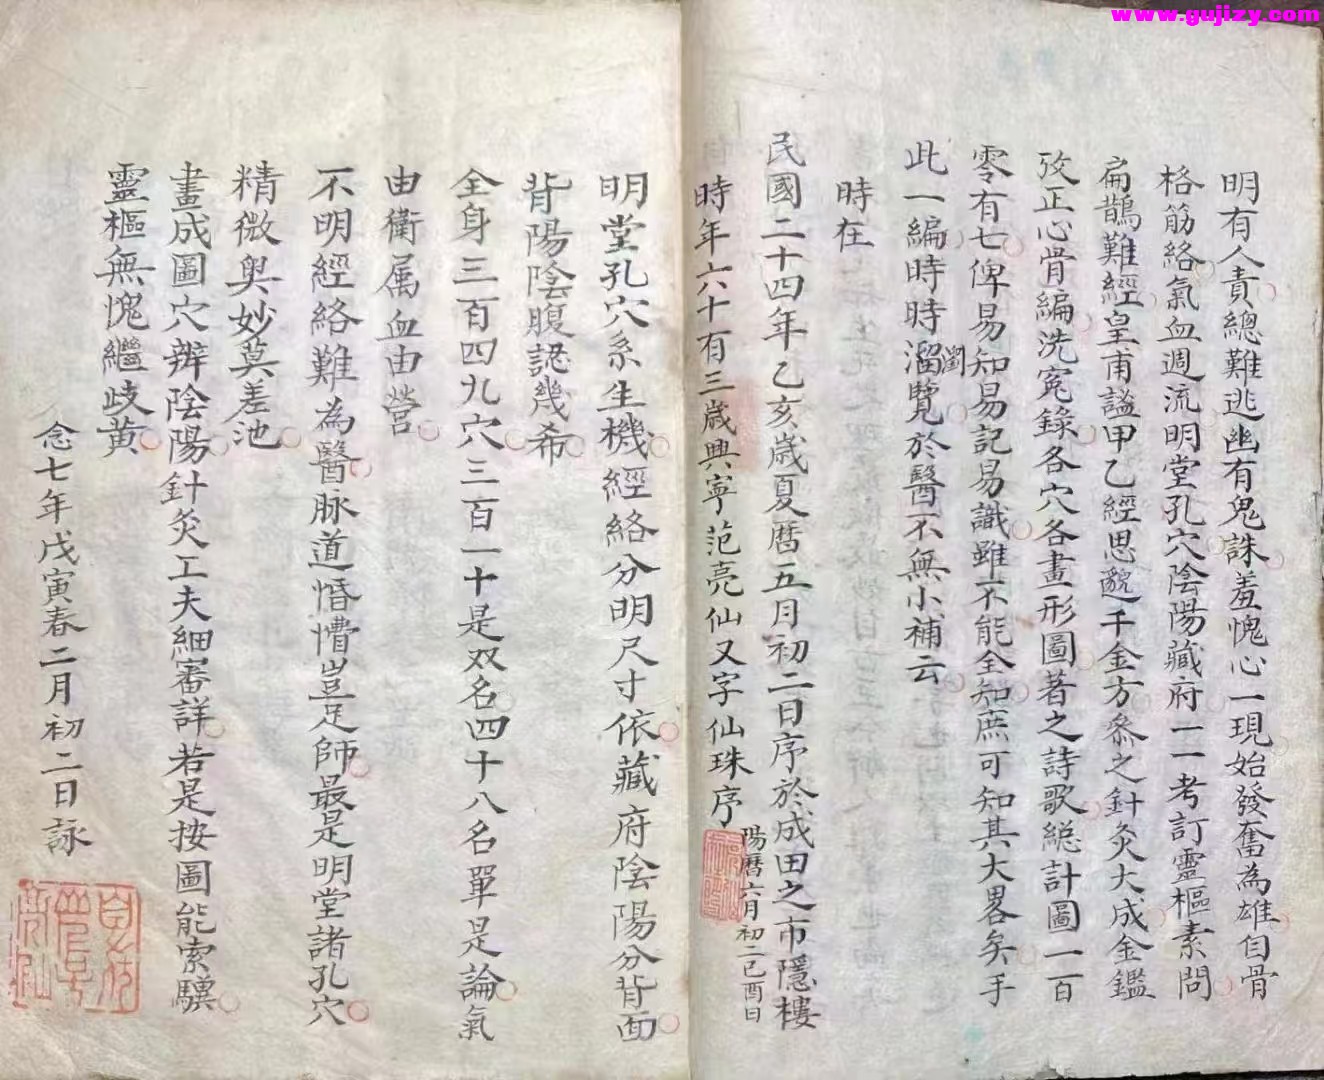 www.gujizy.com
明有人責總難逃幽有鬼誅羞愧心一現始發奮為雄自骨
格筋絡氣血週流明堂孔穴陰陽藏府一一考訂靈樞素問
扁鵲難經皇甫謐甲乙經思邈千金方叅之針灸大成金鑑
攷正心骨編洗冤錄各穴各畫形圖著之詩歌総計圖一百
零有七俾易知易記易識雖不能全知庶可知其大畧矣手
此一編時時溜覽於醫不無小補云
瀏
時在
民國二十四年乙亥歲夏曆五月初二日序於成田之市隱樓
陽曆六月初二己酉日
時年六十有三歲興寧范亮仙又字仙珠序
明堂孔穴系生機經絡分明尺寸依藏府陰陽分背面
背陽陰腹認幾希
全身三百四九穴三百一十是双名四十八名單是論氣
由衛属血由營
不明經絡難為醫脉道惛懵豈足師最是明堂諸孔穴
精微奥妙莫差池
畫成圖穴辨陰陽針灸工夫細審詳若是按圖能索驥
靈樞無愧繼歧黃
念七年戊寅春二月初二日詠